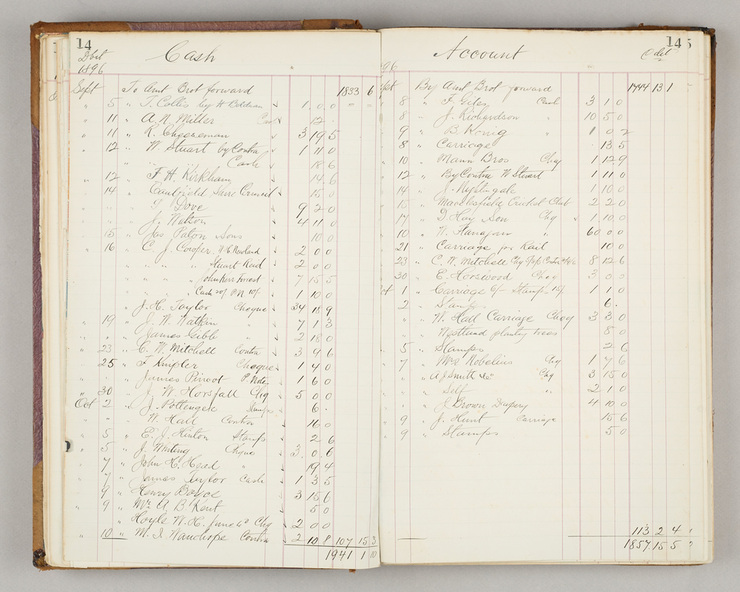 14
Cash
Debit
1896
Sept To Amt Brot forward 1833 6
" 5 " T. Collis by H 1 0 0
" 11 " A. N. Miller Cash 12
" 11 " K. Cheeseman 3 19 5
" 12 " W Stuart by Contra 1 1 0
" " Cash 18 6
" 12 " F. H. Kirkham 14 6
" 14 " Caulfield Council 15 0
" T. Dove 9 2 0
" J. Watson 4 11 0
" 15 " Jas Paton Sons 10 0
" 16 " C. J. Cooper 2 0 0
" " " Stuart Keil 2 0 0
" " " 7 15 5
" " " Cash 1 10 0
J. H. Taylor Cheque 34 18 9
" 19 " J. W. Watkin 7 1 3
" James Gibb 2 18 0
" 23 " C. W. Mitchell Contra 3 9 6
" 25 " F. Kugler Cheque 1 4 0
" James Pirvot P. Note 1 6 0
" 30 " J. W. Horsfall Chq 5 0 0
Oct 2 " J. Nottingale Stamps 6
" " W. Hall Contra 10 0
" 5 " E. J. Hinton Stamps 2 6
" 5 " J. Cheque 3 0 6
" 7 " John H. Head " 19 4
" 7 " James Taylor Cash 1 3 5
" 9 " Henry Boyce 3 15 6
" 9 " Mr A. B. Kent 5 0
Hoyle W. H. June Chq 2 0 0
" 10 " M. I. Wauchope Contra 2 10 8 107 15 3
1941 1
14
Account
Credit
By Amt Brot forward 1744 13 1
" 8 " F. Cash 3 1 0
" 8 " J. Richardson " 10 5 0
" 9 " B. Konig " 1 0 2
" 8 " Carriage 13 5
" 10 " Mann Bros Chq 1 12 9
" 12 " By Contra W Stuart 1 1 0
" 14 " J. Nightingale 1 10 0
" 15 " Central Club 2 2 0
" 17 " D. Hay Son Chq 1 10 0
" 10 " H. Flanagan " 60 0 0
" 21 " Carriage for Keil 10 0
" 23 " C. W. Mitchell Chq 8 12 6
" 30 " E. Horswood Chq 3 0 0
1 " Carriage & Stamps 1 10 0
2 " Stamps 6
" " W. Hall Carriage Chq 3 3 0
" Westland planting trees 8 0
" 5 " Stamps 2 6
" 7 " Mrs Robelin Chq 1 7 6
" " A J Smith &c Chq 3 15 0
" " Self " 2 1 0
" " J. Brown Drapery 4 10 0
" 9 " J. Hunt Carriage 15 6
" 9 " Stamps 5 0
113 2 4
1857 15 5